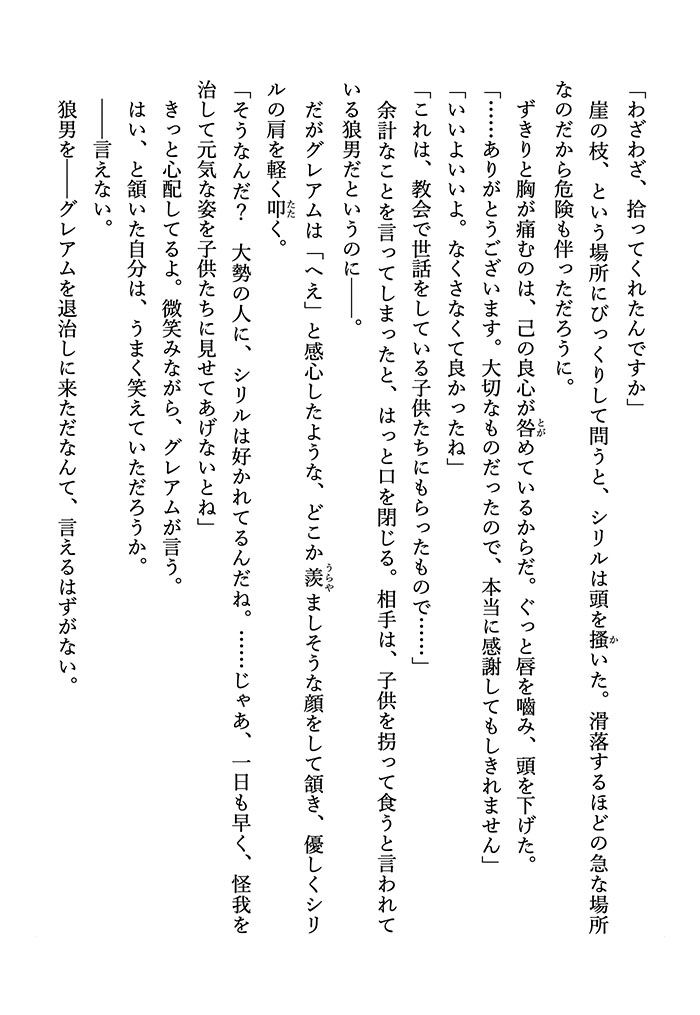 「わざわざ、拾ってくれたんですか」
　崖の枝、という場所にびっくりして問うと、シリルは頭を搔いた。滑落するほどの急な場所
なのだから危険も伴っただろうに。
　ずきりと胸が痛むのは、己の良心が咎めているからだ。ぐっと唇を嚙み、頭を下げた。
「……ありがとうございます。大切なものだったので、本当に感謝してもしきれません」
「いいよいいよ。なくさなくて良かったね」
「これは、教会で世話をしている子供たちにもらったもので……」
　余計なことを言ってしまったと、はっと口を閉じる。相手は、子供を拐って食うと言われて
いる狼男だというのに――。
　だがグレアムは「へえ」と感心したような、どこか羨ましそうな顔をして頷き、優しくシリ
ルの肩を軽く叩く。
「そうなんだ？　大勢の人に、シリルは好かれてるんだね。……じゃあ、一日も早く、怪我を
治して元気な姿を子供たちに見せてあげないとね」
　きっと心配してるよ。微笑みながら、グレアムが言う。
　はい、と頷いた自分は、うまく笑えていただろうか。
　――言えない。
　狼男を――グレアムを退治しに来ただなんて、言えるはずがない。